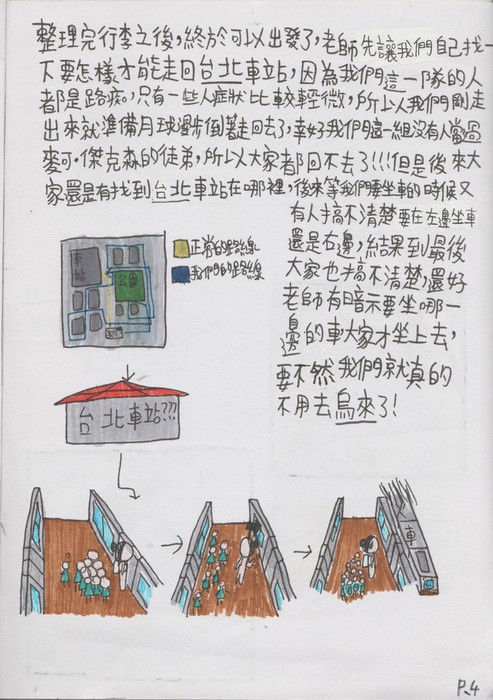 整理完行李之後,終於可以出發了,老師先讓我們自己找一
下要怎樣才能走回台北車站,因為我們這一隊的人
都是路痴。只有一些人症狀比較輕微,所以我們剛走
出來就準備月球漫步倒著走回去了,幸好我們這一組沒有人當過
麥可.傑克森的徒弟,所以大家都回不去了!!!但是後來大
家還是有找到台北車站在哪裡,後來等我們要坐車的時候又
有人搞不清楚要在左邊坐車
還是右邊,結果到最後
大家也搞不清楚,還好
老師有暗示要坐哪一
邊的車大家才坐上去,
要不然我們就真的
不用去烏來了!
車站
公園
正常的路線
我們的路線
台北車站???
車
P.4